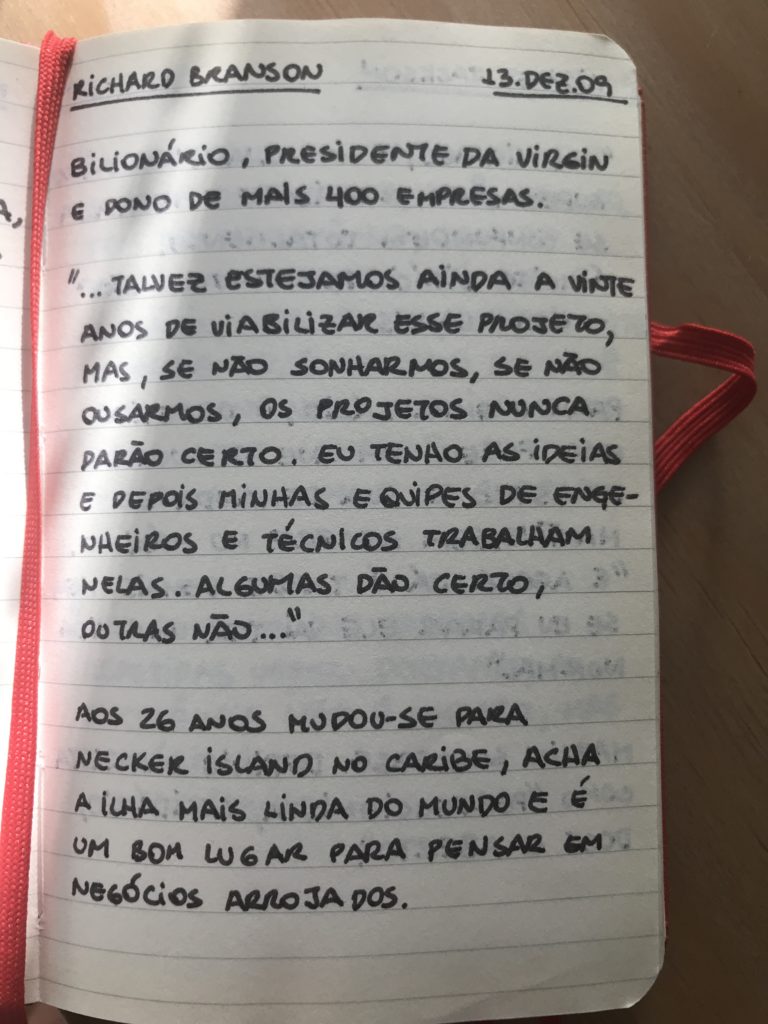 RICHARD BRANSON 13.DEZ.09
BILIONÁRIO, PRESIDENTE DA VIRGIN
E DONO DE MAIS 400 EMPRESAS.
"... TALVEZ ESTEJAMOS AINDA A VINTE
ANOS DE VIABILIZAR ESSE PROJETO,
MAS, SE NÃO SONHARMOS, SE NÃO
OUSARMOS, OS PROJETOS NUNCA
DARÃO CERTO. EU TENHO AS IDEIAS
E DEPOIS MINHAS EQUIPES DE ENGE-
NHEIROS E TÉCNICOS TRABALHAM
NELAS. ALGUMAS DÃO CERTO,
OUTRAS NÃO..."
AOS 26 ANOS MUDOU-SE PARA
NECKER ISLAND NO CARIBE, ACHA
A ILHA MAIS LINDA DO MUNDO E É
UM BOM LUGAR PARA PENSAR EM
NEGÓCIOS ARROJADOS.